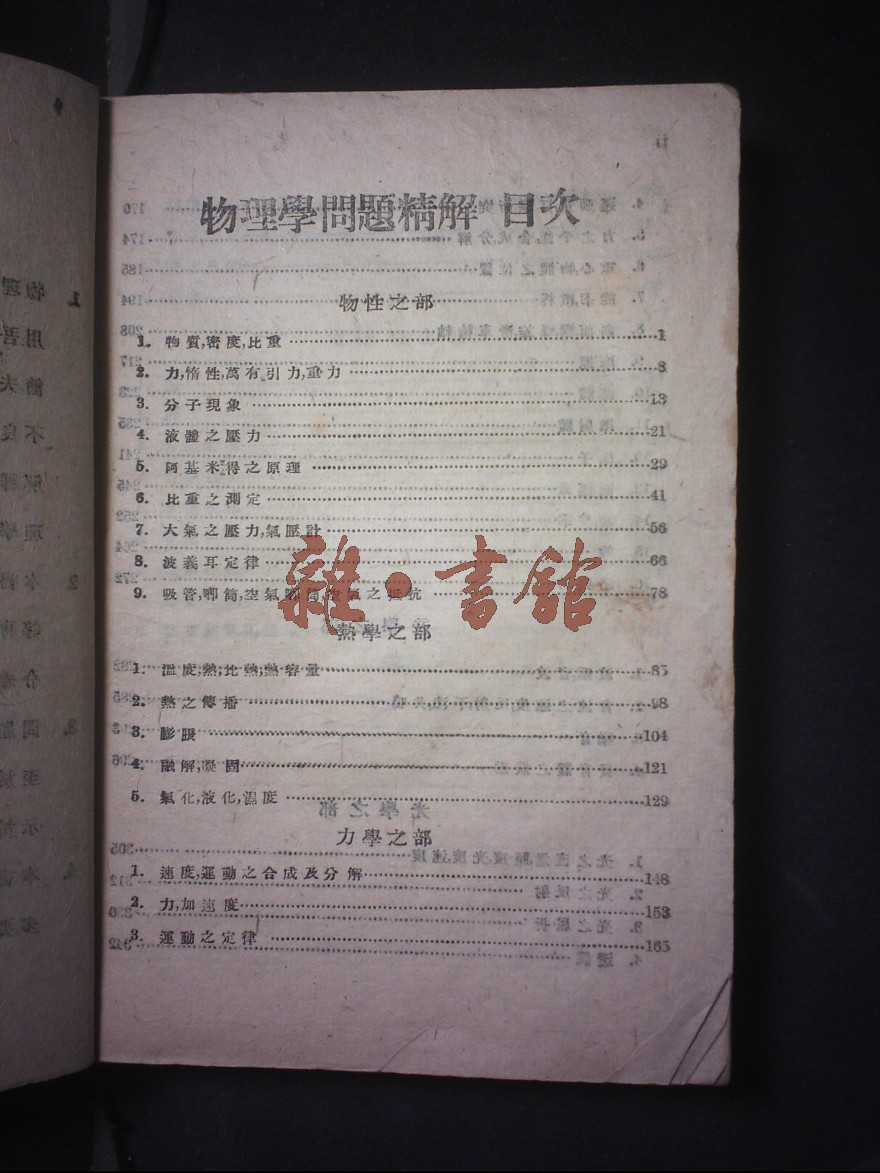 物理學問題精解 目次
物性之部
1. 物質,密度,比重 1
2. 力,惰性,萬有引力,重力 8
3. 分子現象 13
4. 液體之壓力 21
5. 阿基米得之原理 29
6. 比重之測定 41
7. 大氣之壓力,氣壓計 56
8. 波義耳定律 66
9. 吸管,喞筒,空氣喞筒,空氣之抵抗 78
雜·書舘
熱學之部
1. 溫度,熱,比熱,熱容量 85
2. 熱之傳播 98
3. 膨脹 104
4. 融解,凝固 121
5. 氣化,液化,溫度 129
力學之部
1. 速度,運動之合成及分解 148
2. 力,加速度 153
3. 運動之定律 165